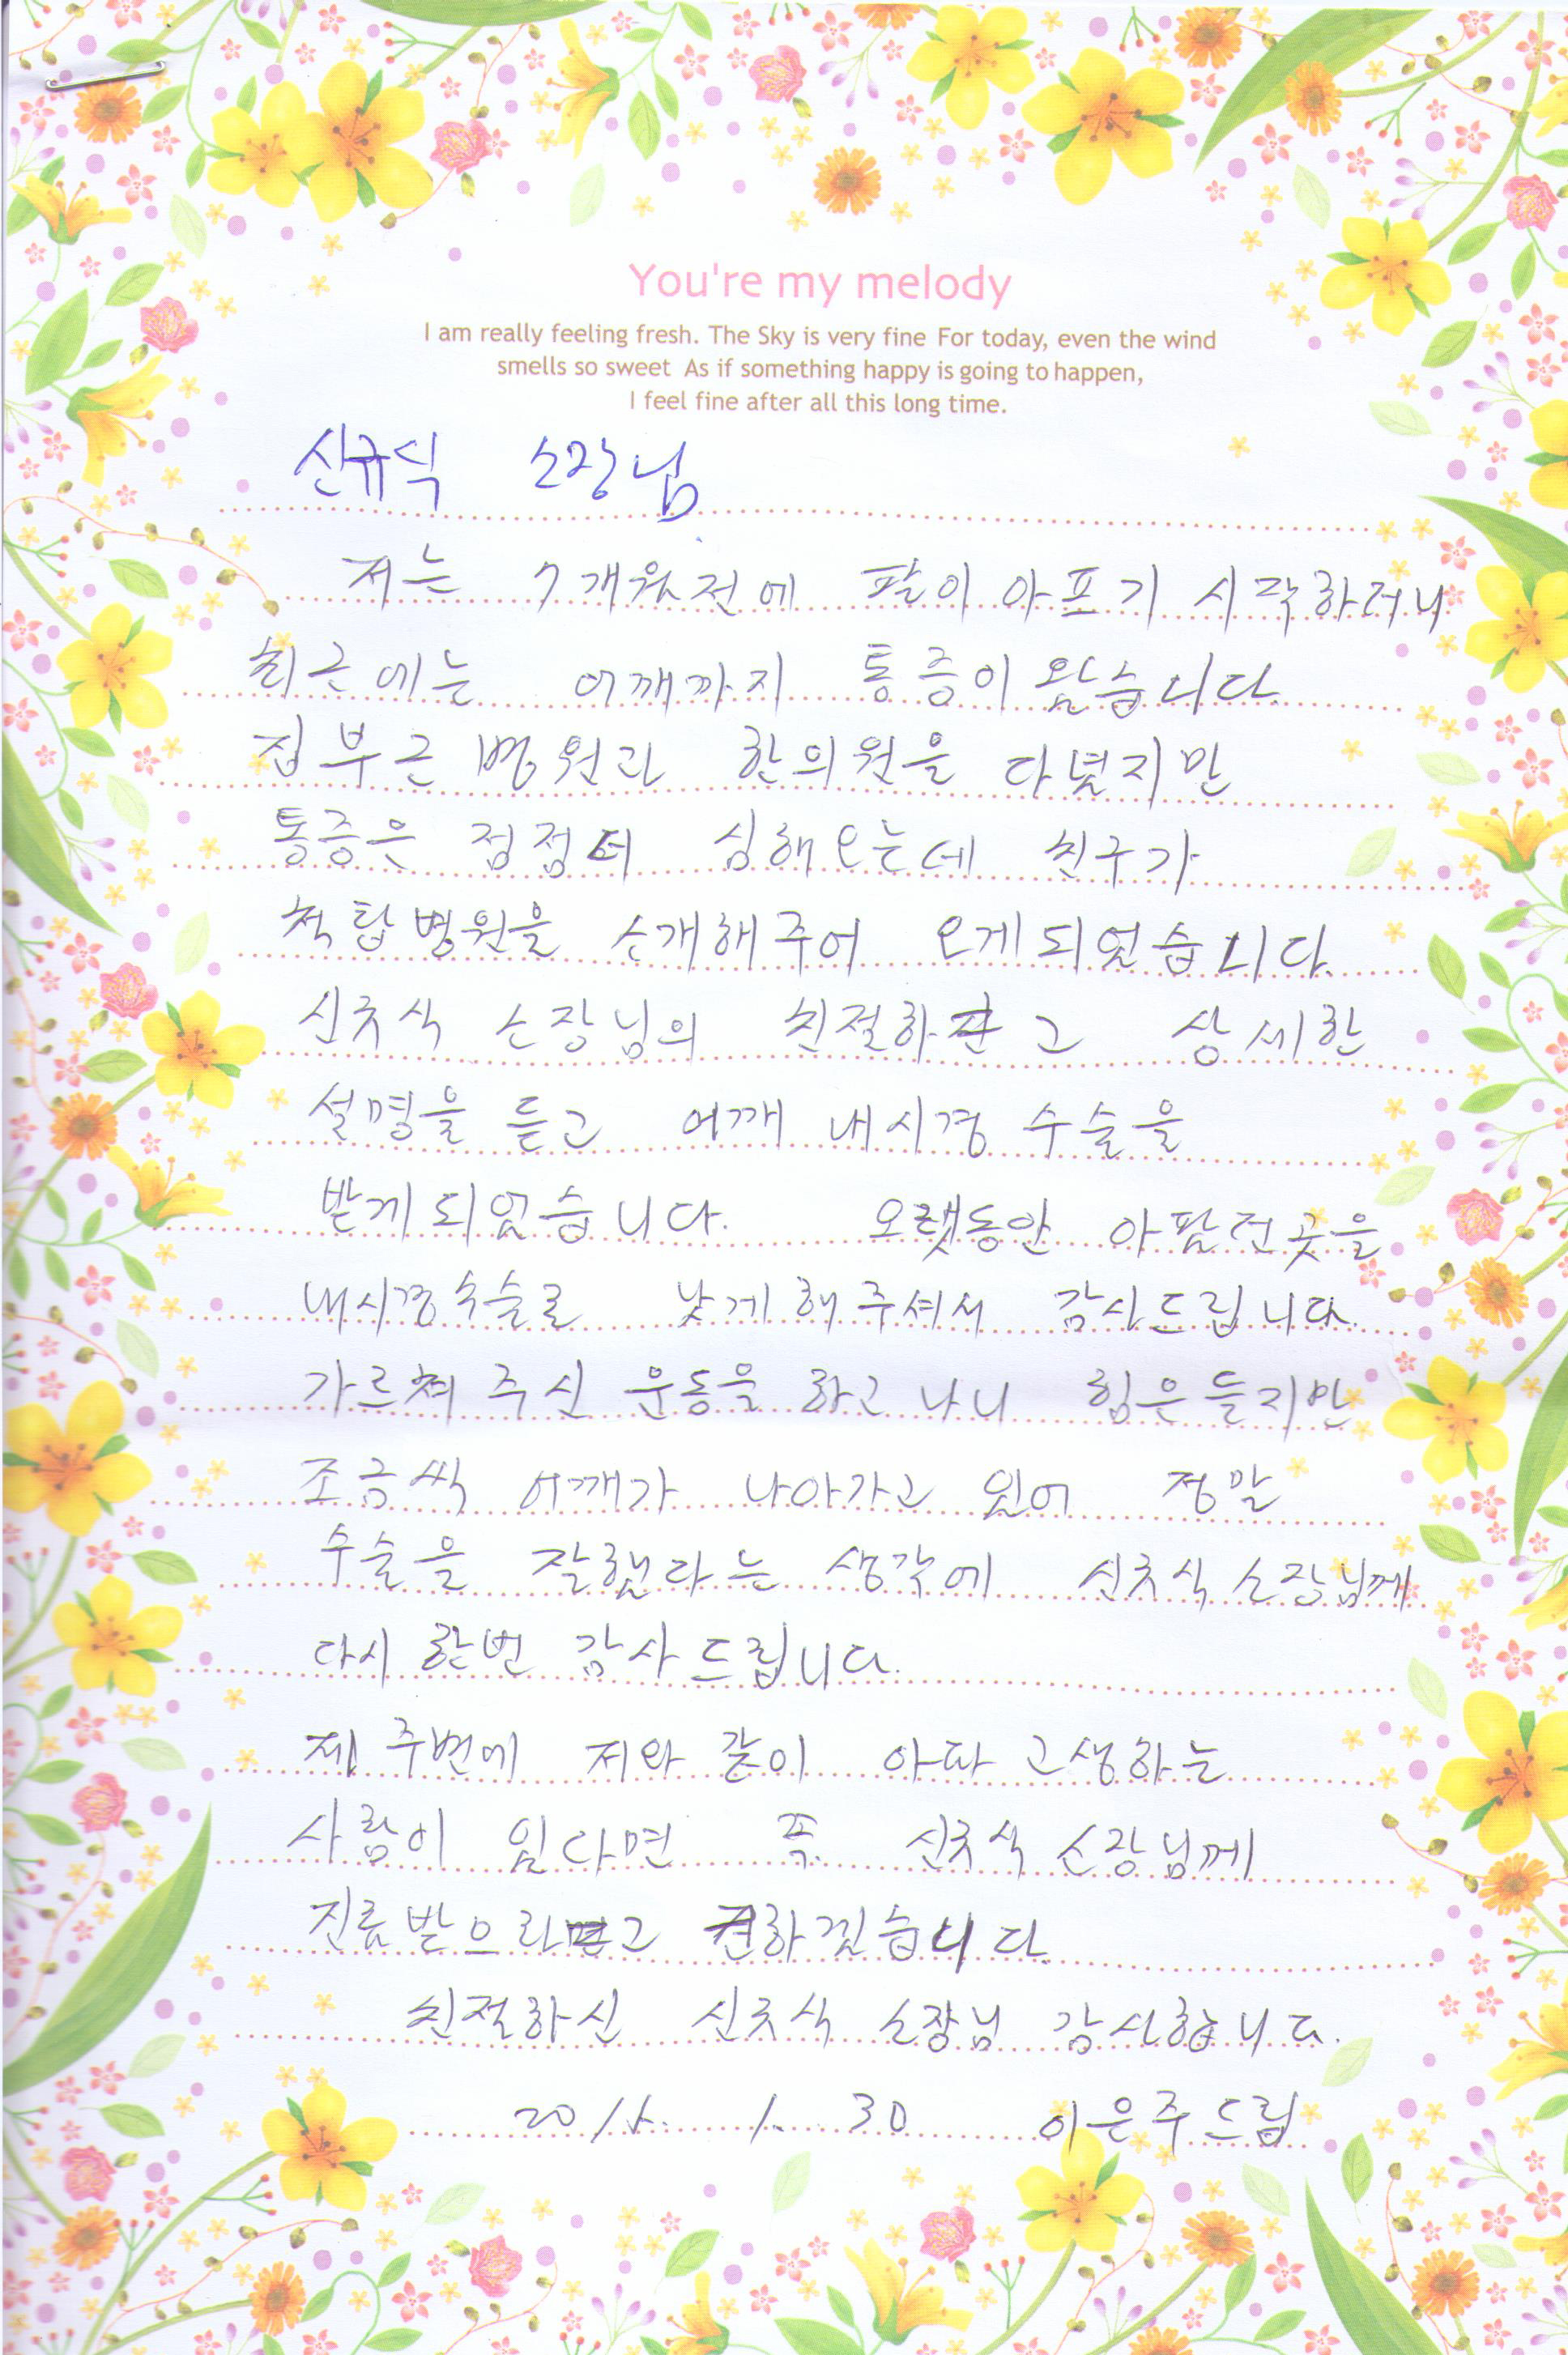 You're my melody
I am really feeling fresh. The Sky is very fine For today, even the wind
smells so sweet As if something happy is going to happen,
I feel fine after all this long time.
신규식 소장님
저는 7개월전에 팔이 아프기 시작하더니
최근에는 어깨까지 통증이 왔습니다.
집 부근 병원과 한의원을 다녔지만
통증은 점점더 심해오는데 친구가
척탑병원을 소개해주어 오게되었습니다.
소장님의 친절하고 상세한
설명을 듣고 어깨 내시경 수술을
받게 되었습니다. 오랫동안 아팠던곳을
내시경수술로 낫게 해주셔서 감사드립니다.
가르쳐 주신 운동을 하고 나니 힘은들지만
조금씩 어깨가 나아가고 있어 정말
수술을 잘했다는 생각에 소장님께
다시 한번 감사드립니다.
제 주변에 저와 같이 아파 고생하는
사람이 있다면 꼭 소장님께
진료받으라고 권하겠습니다.
친절하신 소장님 감사합니다.
1. 30 이은주드림